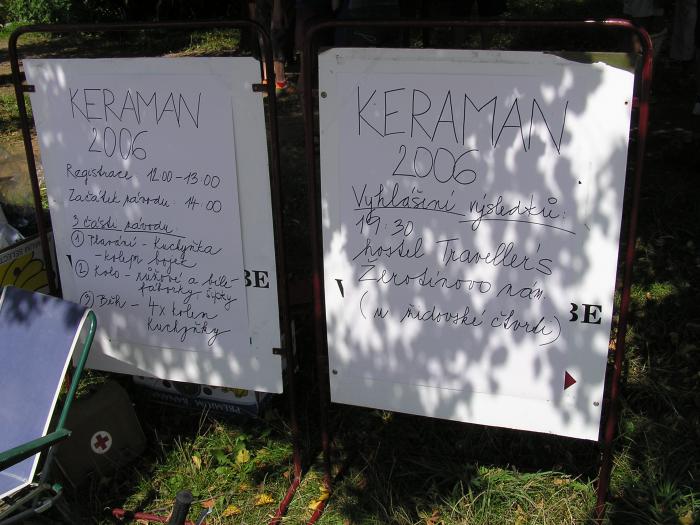 KERAMAN
2006
Registrace 12.00-13:00
Začátek závodu: 14:00
3 části závodu:
① Plavání - Kuchyňka
- kolem bojek
② Kolo - růžové a bílé
fáborky, šipky
③ Běh - 4x kolem
Kuchyňky
BE
KERAMAN
2006
Vyhlášení výsledků:
19:30
hostel Traveller's
Žerotínovo nám.
(u židovské čtvrti)
BE
PREMIUM BANANAS